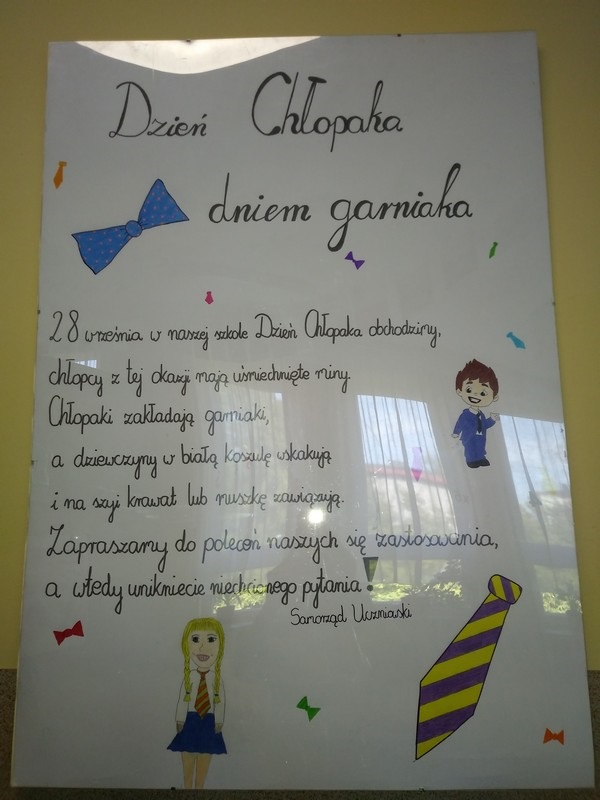 Dzień Chłopaka
dniem garniaka
28 września w naszej szkole Dzień Chłopaka obchodzimy,
chłopcy z tej okazji mają uśmiechnięte miny.
Chłopaki zakładają garniaki,
a dziewczyny w białą koszulę wskakują
i na szyi krawat lub muszkę zawiązują.
Zapraszamy do poleceń naszych się zastosowania,
a wtedy unikniecie niechcianego pytania!
Samorząd Uczniowski